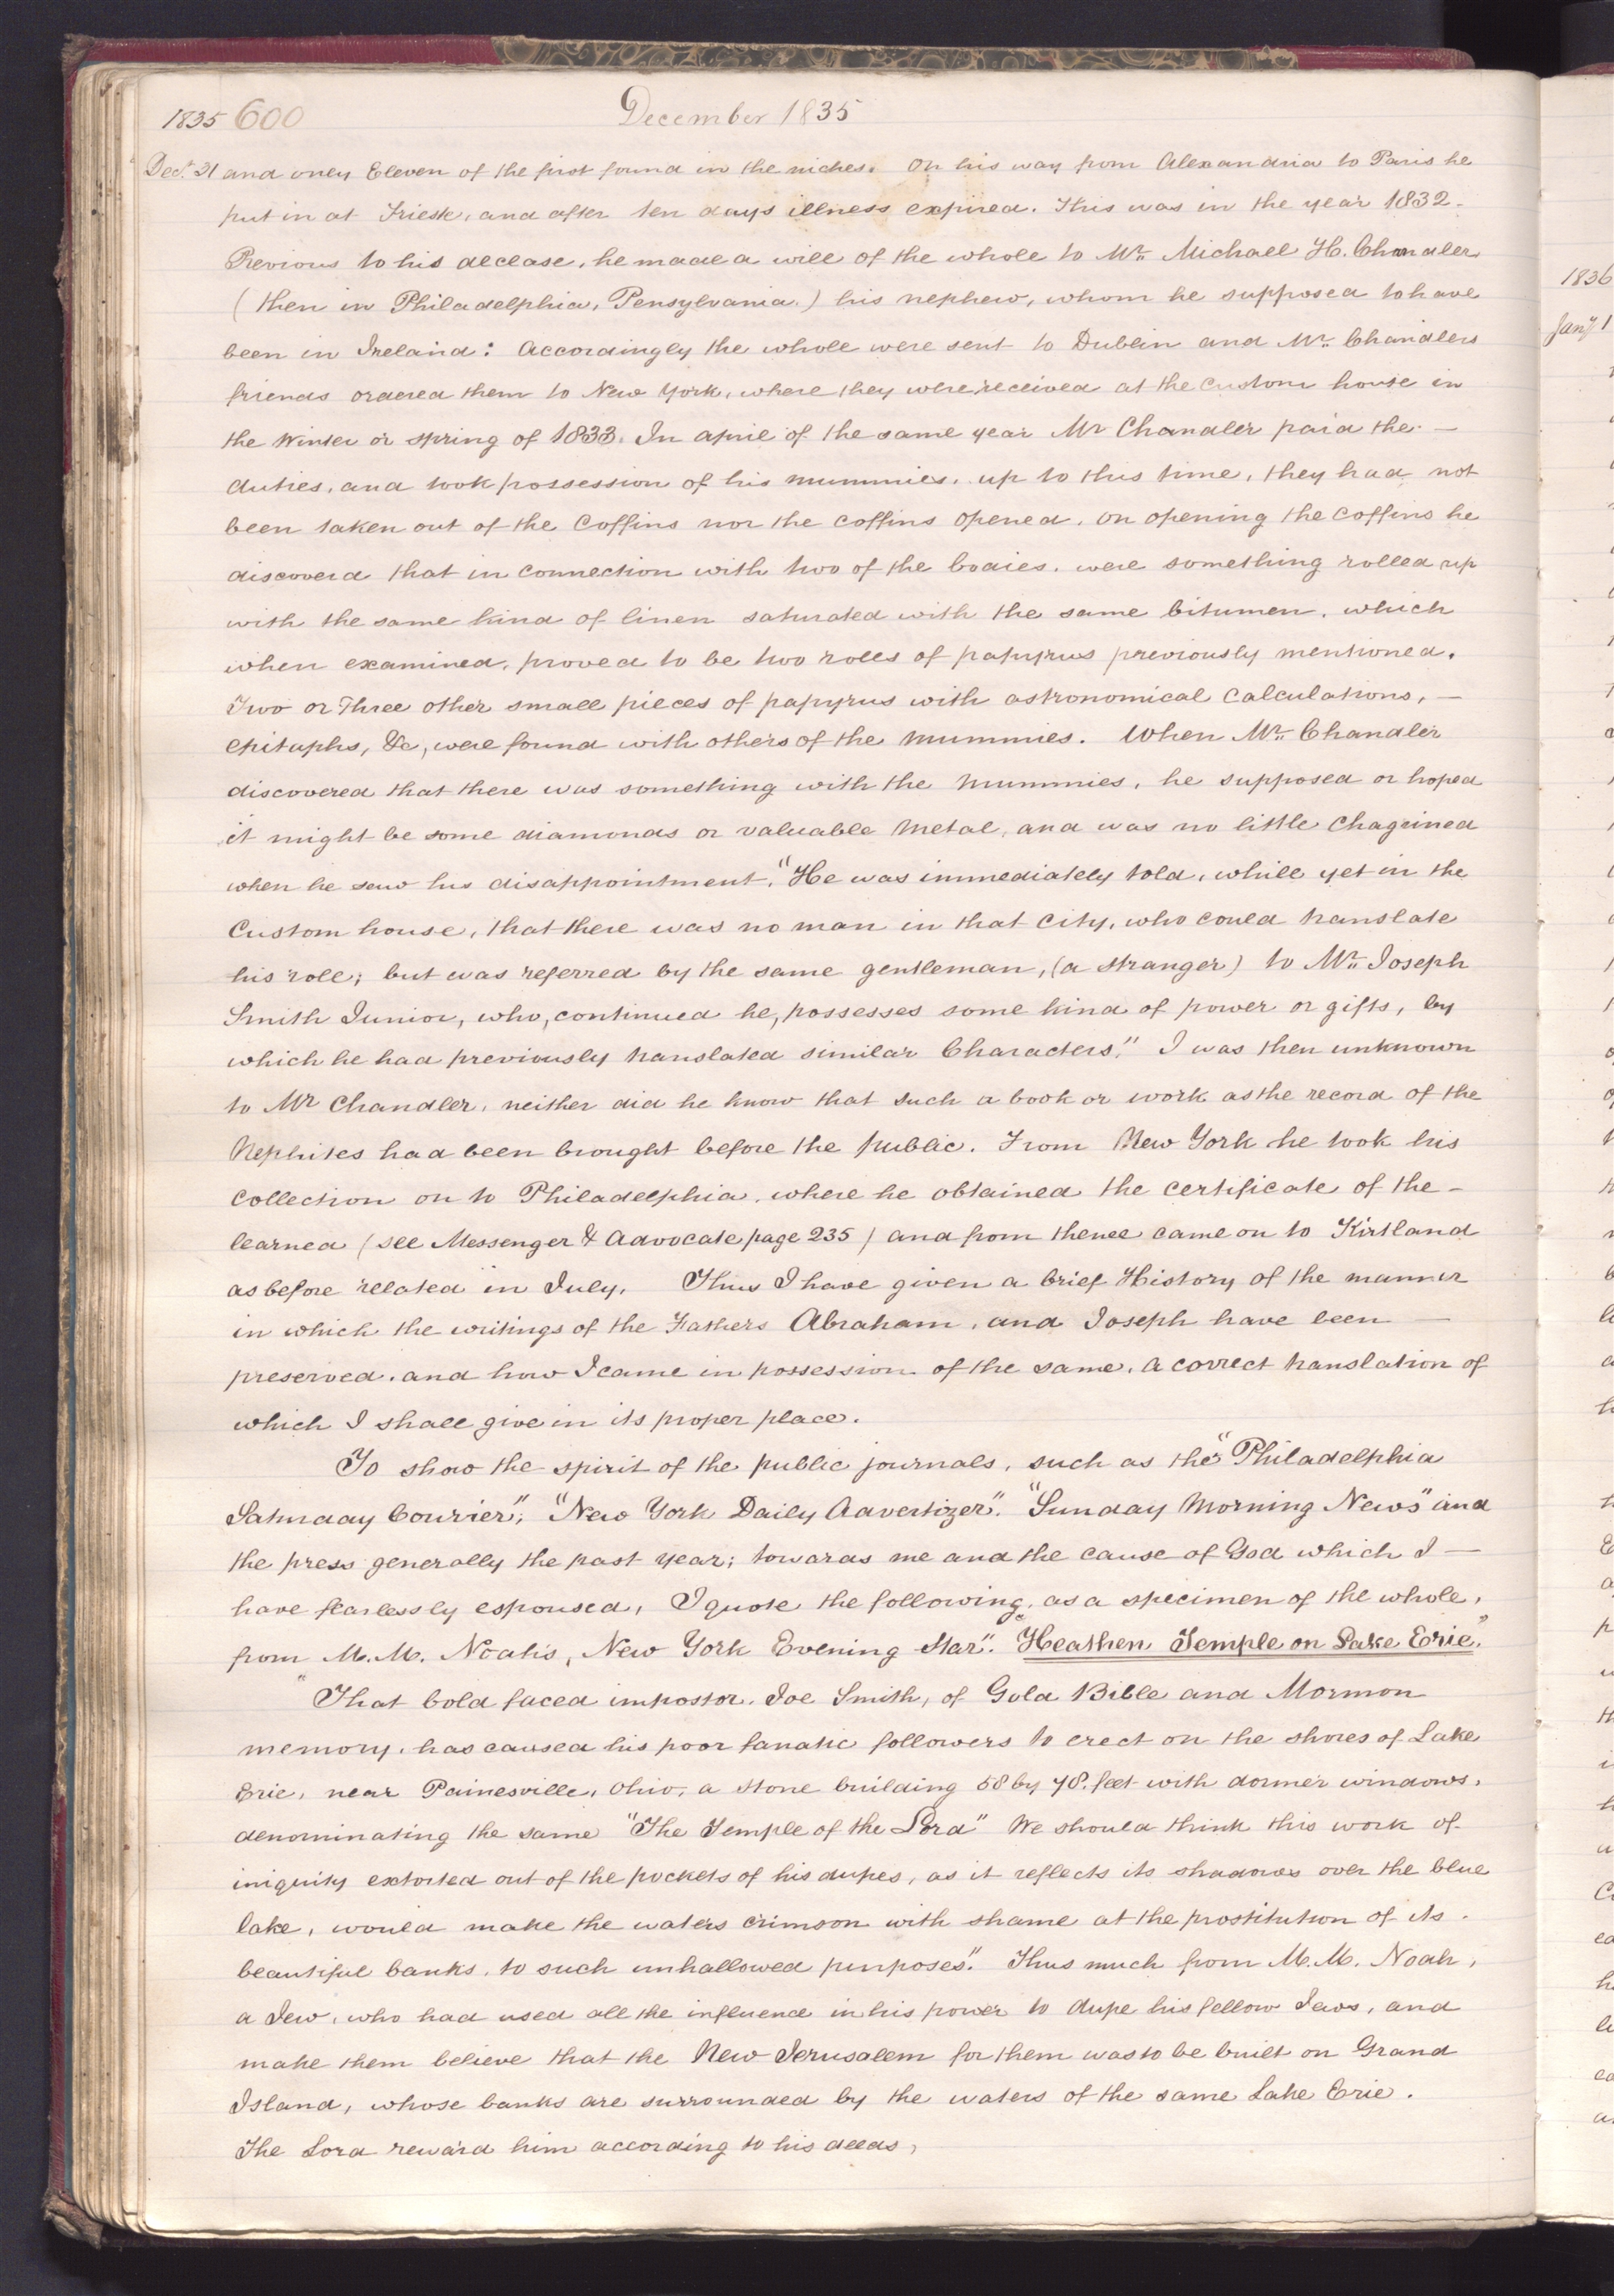 1835 600 December 1835
Dec. 31 and only Eleven of the first found in the niches. On his way from Alexandria to Paris he
put in at Trieste, and after ten days illness expired. This was in the year 1832.
Previous to his decease, he made a will of the whole to Mr. Michael H. Chandler
(then in Philadelphia, Pensylvania.) his nephew, whom he supposed to have
been in Ireland: Accordingly the whole were sent to Dublin and Mr. Chandlers
friends ordered them to New York, where they were received at the custom house in
the Winter or spring of 1833. In april of the same year Mr Chandler paid the —
duties, and took possession of his mummies. up to this time, they had not
been taken out of the Coffins nor the coffins opened. on opening the coffins he
discoverd that in connection with two of the bodies. were something rolled up
with the same kind of linen saturated with the same bitumen, which
when examined, proved to be two rolls of papyrus previously mentioned.
Two or Three other small pieces of papyrus with astronomical calculations, —
epitaphs, &c, were found with others of the mummies. When Mr. Chandler
discovered that there was something with the mummies, he supposed or hoped
it might be some diamonds or valuable metal, and was no little chagrined
when he saw his disappointment. "He was immediately told, while yet in the
Custom house, that there was no man in that City, who could translate
his roll; but was referred by the same gentleman, (a stranger) to Mr. Joseph
Smith Junior, who, continued he, possesses some kind of power or gifts, by
which he had previously translated similar Characters." I was then unknown
to Mr Chandler, neither did he know that such a book or work as the record of the
Nephites had been brought before the public. From New York he took his
collection on to Philadelphia, where he obtained the certificate of the —
learned (see Messenger & Advocate page 235) and from thence came on to Kirtland
as before related in July. Thus I have given a brief History of the manner
in which the writings of the Fathers Abraham, and Joseph have been —
preserved. and how I came in possession of the same. a correct translation of
which I shall give in its proper place.
To show the spirit of the public journals, such as the "Philadelphia
Saturday Courier", "New York Daily Advertizer". "Sunday Morning News" and
the press generally the past year; towards me and the cause of God which I —
have fearlessly espoused, I quote the following, as a specimen of the whole,
from M. M. Noah's, New York Evening Star". "Heathen Temple on Lake Erie."
"That bold faced impostor. Joe Smith, of Gold Bible and Mormon
memory, has caused his poor fanatic followers to erect on the shores of Lake
Erie, near Painesville, Ohio, a stone building 58 by 78. feet with dormer windows,
denominating the same "The Temple of the Lord" We should think this work of
iniquity extorted out of the pockets of his dupes, as it reflects its shadows over the blue
lake, would make the waters crimson with shame at the prostitution of its
beautiful banks, to such unhallowed purposes." Thus much from M. M. Noah,
a Jew, who had used all the influence in his power to dupe his fellow Jews, and
make them believe that the New Jerusalem for them was to be built on Grand
Island, whose banks are surrounded by the waters of the same Lake Erie.
The Lord reward him according to his deeds,
1836
Jany 1